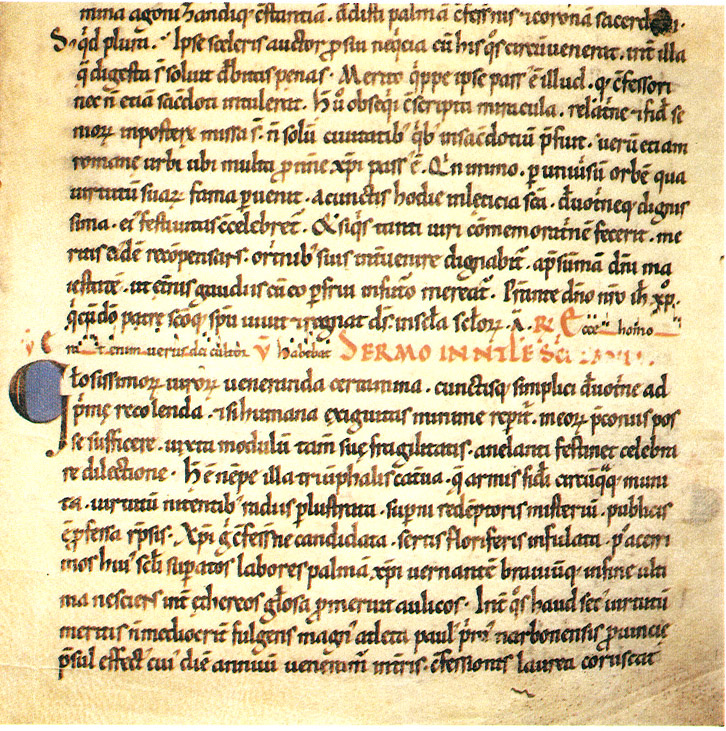 mina agoni handiq; c̄stantiā. addisti palmā c̄fessiīs ⁊ coronā sacerd
S; q̇d plura. Ipse sceleris auctor ꝓ sui neq̇cia cū his q̇s circūvenerat. int̄ illa
q̇ digesta s̄ soluit d̄bitas penas. Merito q̇ppe ipse pass᷒ ē illud. q̇ c̄fessori
nec n̄ etiā sac̄doti intulerat. obseq̇ c̄scripta miracula. relat̄ne ⁊ fid̄
inpost̄ere missa s̄. n̄ solū ciuitatib᷒ q̇b᷒ insac̄dotiū p̄fuit. uerū etiam
romane urbi ubi multa ꝓ n̄ne xp̄i pass᷒ ē. Q̇n immo. ꝑ uniūsū orbē qua
uirtutū suaꝝ fama ꝑuenit. a cunctis hodie inleticia sc̄a. d̄uot̄neq; dignis
sima. ei᷒ festiuitas c̄celebret᷑. Et siq̇s tanti uiri cōmemorat̄nē fecerit. me
ritis eidē recōpensari. dignabit᷑. ap᷒ sūmā dn̄i ma
iestatē. ut et̄nis gaudiis cū eo ꝑfrui infinito mereat᷑. P̄stante dn̄o nr̄o ih̄u xp̄o.
q̇ cū dō patre sc̄oq; sp̄u uiuit ⁊ regnat ds̄. in sc̄la sc̄loꝝ. A. R; Ecce homo
uerus dei cultor V habebat SERMO IN NT̄LE SC̄I
Glosissimoꝝ uiroꝝ ueneranda certamina. cunctisq; simplici d̄uot̄ne ad
p̄me recolenda. ⁊ si humana exiguitas minime rep̄it. meoꝝ p̄conus pos
se sufficere. iuxta modulū tam̄ sue fragilitatis. anelanti festinet celebra
re dilectione. H̄ ē nēpe illa triūphalis cat̄ua. q̇ armis fid̄i circūq̇q; muni
ta. uirtutū nitentib᷒ radiis ꝑlustrata. sup̄ni red̄eptoris misteriū. publicis
c̄ꝓfessa r̄psis. Xp̄i c̄fess̄ne candidata. sertis floriferis infulata. p᷒ acerri
mos hui᷒ sc̄li suꝑatos labores palmā xp̄i uernantē brauiūq; infine ulti
ma nesciens int̄ ethereos gl̄osa ꝓmeruit aulicos. Int̄ q̇s haud sec᷒ uirtutū
meritis n̄ mediocrit̄ fulgens magn᷒ atleta paul᷒ p̄m̄ narbonensis ꝓuincie
p̄sul effect᷒ cui᷒ diē annuū uenerām̄ c̄fessionis laurea coruscat